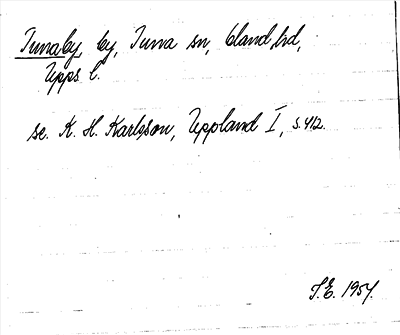 Tunaby, by, Tuna sn, Oland hd,
Upps l.
se. K. H. Karlsson, Uppland I, s. 412.
S.E. 1954.